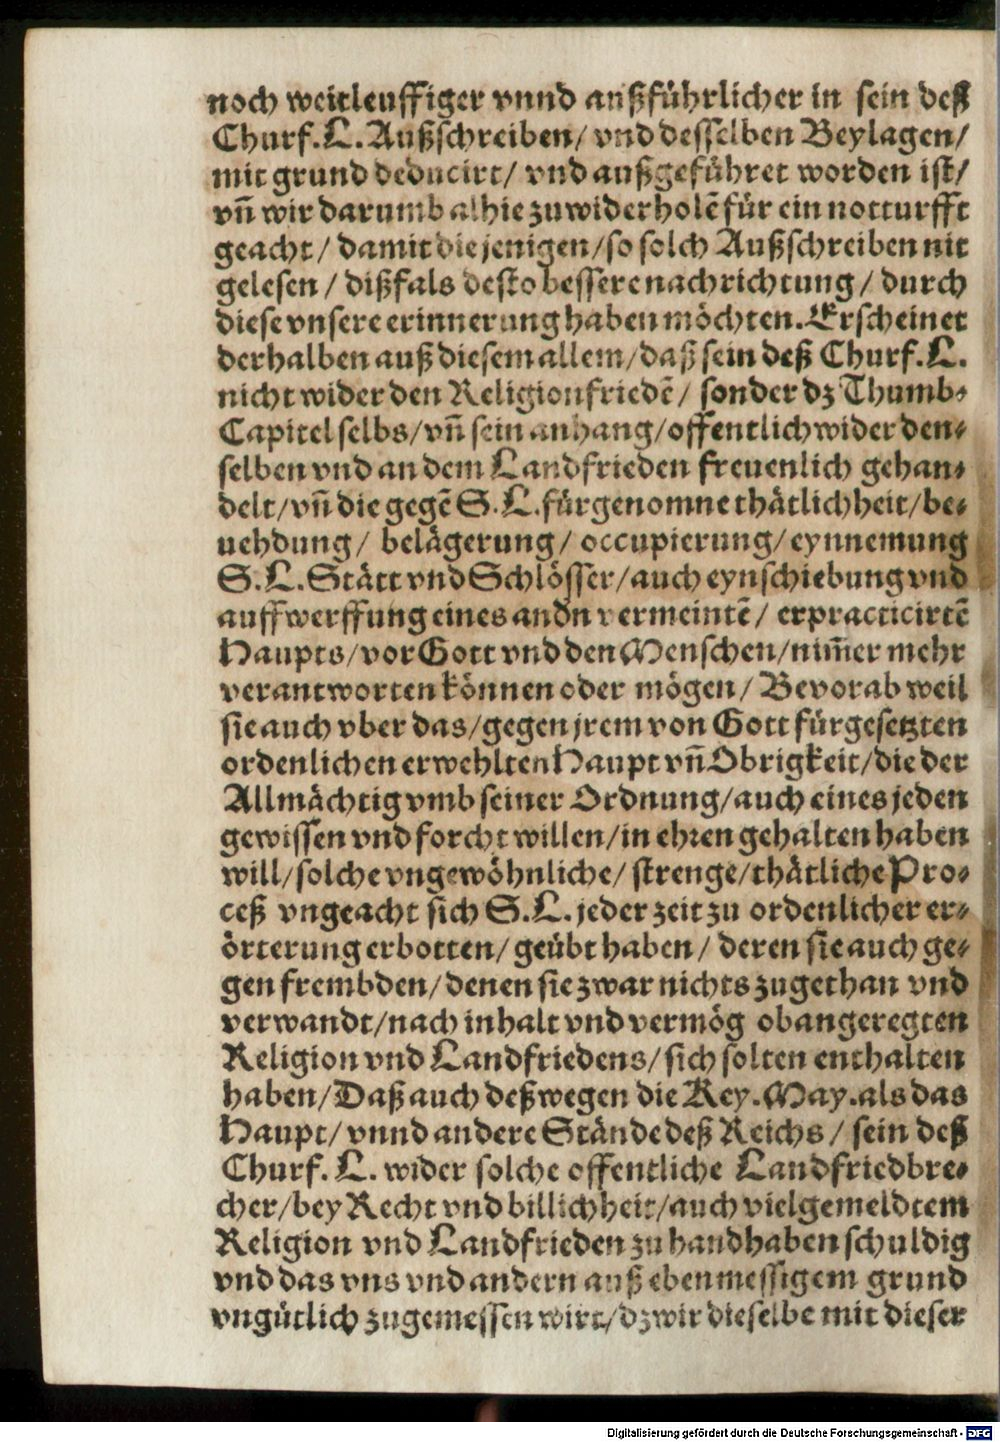 noch weitleuffiger vnnd außführlicher in sein deß
Churf. L. Außschreiben/ vnd desselben Beylagen/
mit grund deducirt/ vnd außgeführet worden ist/
vñ wir darumb alhie zu widerholẽ für ein notturfft
geacht/ damit die jenigen/ so solch Außschreiben nit
gelesen/ dißfals desto bessere nachrichtung/ durch
diese vnsere erinnerung haben möchten. Erscheinet
derhalben auß diesem allem/ daß sein deß Churf. L.
nicht wider den Religionfriedẽ/ sonder dz Thumb-
Capitel selbs/ vñ sein anhang/ offentlich wider den-
selben vnd an dem Landfrieden freuenlich gehan-
delt/ vñ die gegẽ S. L. fürgenomne thätlichheit/ be-
uehdung/ belägerung/ occupierung/ eynnemung
S. L. Stätt vnd Schlösser/ auch eynschiebung vnd
auffwerffung eines andn vermeintẽ/ erpracticirtẽ
Haupts/ vor Gott vnd den Menschen/ nim̃er mehr
verantworten können oder mögen/ Bevorab weil
sie auch vber das/ gegen jrem von Gott fürgesetzten
ordenlichen erwehlten Haupt vñ Obrigkeit/ die der
Allmächtig vmb seiner Ordnung/ auch eines jeden
gewissen vnd forcht willen/ in ehren gehalten haben
will/ solche vngewöhnliche/ strenge/ thätliche Pro-
ceß vngeacht sich S. L. jeder zeit zu ordenlicher er-
örterung erbotten/ geübt haben/ deren sie auch ge-
gen frembden/ denen sie zwar nichts zugethan vnd
verwandt/ nach inhalt vnd vermög obangeregten
Religion vnd Landfriedens/ sich solten enthalten
haben/ Daß auch deßwegen die Key. May. als das
Haupt/ vnnd andere Stände deß Reichs/ sein deß
Churf. L. wider solche offentliche Landfriedbre-
cher/ bey Recht vnd billichheit/ auch vielgemeldtem
Religion vnd Landfrieden zu handhaben schuldig
vnd das vns vnd andern auß ebenmessigem grund
vngütlich zugemessen wirt/ dz wir dieselbe mit dieser
Digitalisierung gefördert durch die Deutsche Forschungsgemeinschaft - DFG